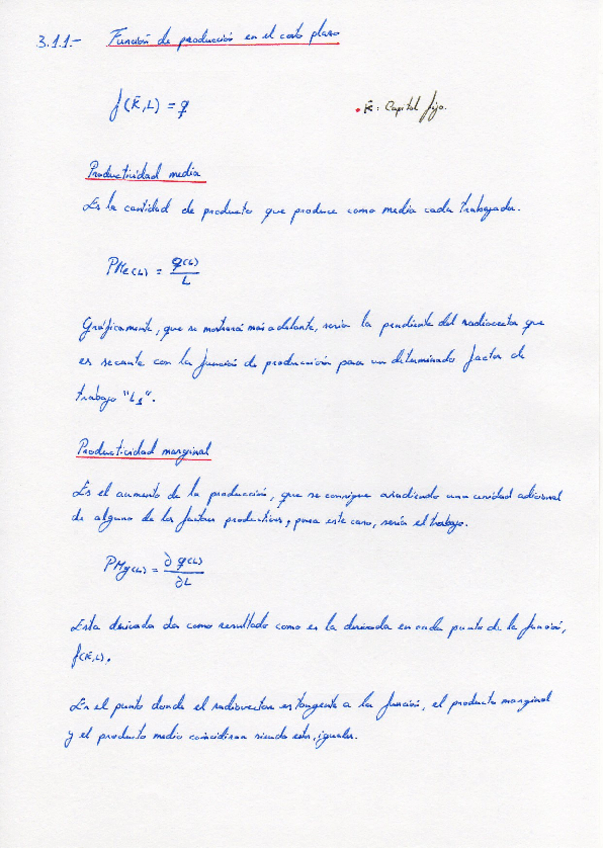 3.1.1.- Función de producción en el corto plazo
f(K̄,L) = q
• K̄: Capital fijo.
Productividad media
Es la cantidad de producto que produce como media cada trabajador.
PMe(L) = q(L) / L
Gráficamente, que se mostrará más adelante, sería la pendiente del radiovector que
es secante con la función de producción para un determinado factor de
trabajo "L1".
Productividad marginal
Es el aumento de la producción, que se consigue añadiendo una unidad adicional
de alguno de los factores productivos, para este caso, sería el trabajo.
PMg(L) = ∂ q(L) / ∂L
Esta derivada da como resultado como es la derivada en cada punto de la función,
f(K̄,L).
En el punto donde el radiovector es tangente a la función, el producto marginal
y el producto medio coincidiran siendo estos, iguales.